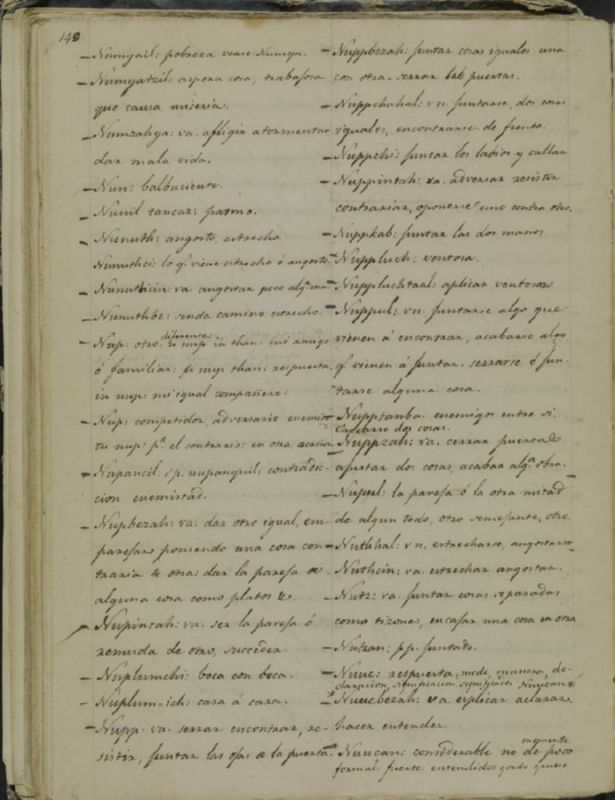 148
– Numyail: pobreza vease Numya.
– Numyatzil: aspera cosa, trabajosa
que causa miseria.
– Numzahya: va. afligir atormentar
dar mala vida.
– Nun: balbuciente.
– Nunil tancaz: pasmo.
– Nunuth: angosto, estrecho
Nunuthci: lo q.e viene estrecho ó angosto
– Nunuthcin: va. angostar poco
– Nunuthbe: senda camino estrecho.
– Nup: otro, diferente: in nup in than: mi amigo
ó familiar, u nup than: respuesta
in nup: mi igual compañero:
– Nup: competidor, adversario enemigo
tu nup: p.r el contrario: en otra
– Nupancil, l. p. nupanquil: contradic-
cion enemistad.
– Nupbezah: va: dar otro igual, em-
parejar poniendo una cosa con-
traria de otra: dar la pareja a
alguna cosa como platos &.
– Nupintah: va. ser la pareja ó
remuda de otro, succeder.
– Nuplumchi: boca con boca.
– Nuplum-ich: cara á cara.
– Nupp. va. serrar encontrar, re-
sistir, juntar las ojas de la puerta.
– Nuppbezah: juntar cosas iguales una
con otra. serrar las puertas.
– Nuppchahal: vn. juntarse, dos cosas
iguales, encontrarse de frente.
– Nuppchi: juntar los labios y callar
– Nuppintah: va. adversar resistir
contrariar, oponerse uno contra otro.
– Nuppkab: juntar las dos manos
– Nuppluch: ventosa.
– Nuppluchtaal: aplicar ventosas
– Nuppul: vn. juntarse algo que
vienen á encontrar, acabarse algo
q.e vienen á juntar. serrarse ó jun-
tarse alguna cosa.
– Nupptanba. enemigos entre si
dos cosas.
– Nuppzah: va. cerrar puertas
ajustar dos cosas, acabar alg.a obra.
– Nupul: la pareja ó la otra mitad
de algun todo, otro semejante, otro
– Nuthhal: vn. estrecharse, angostarse
– Nuthcin: va. estrechar angostar.
– Nutz: va. juntar cosas separadas
como tizones, encajar una cosa en otra
– Nutzan: p.p. juntado.
– Nuuc: respuesta, modo, manera, de-
claracion, significacion
– Nuucbezah: va. esplicar aclarar
hacer entender
– Nuucan: considerable no de poco momento
formal: fuerte: entendido: grande grueso.